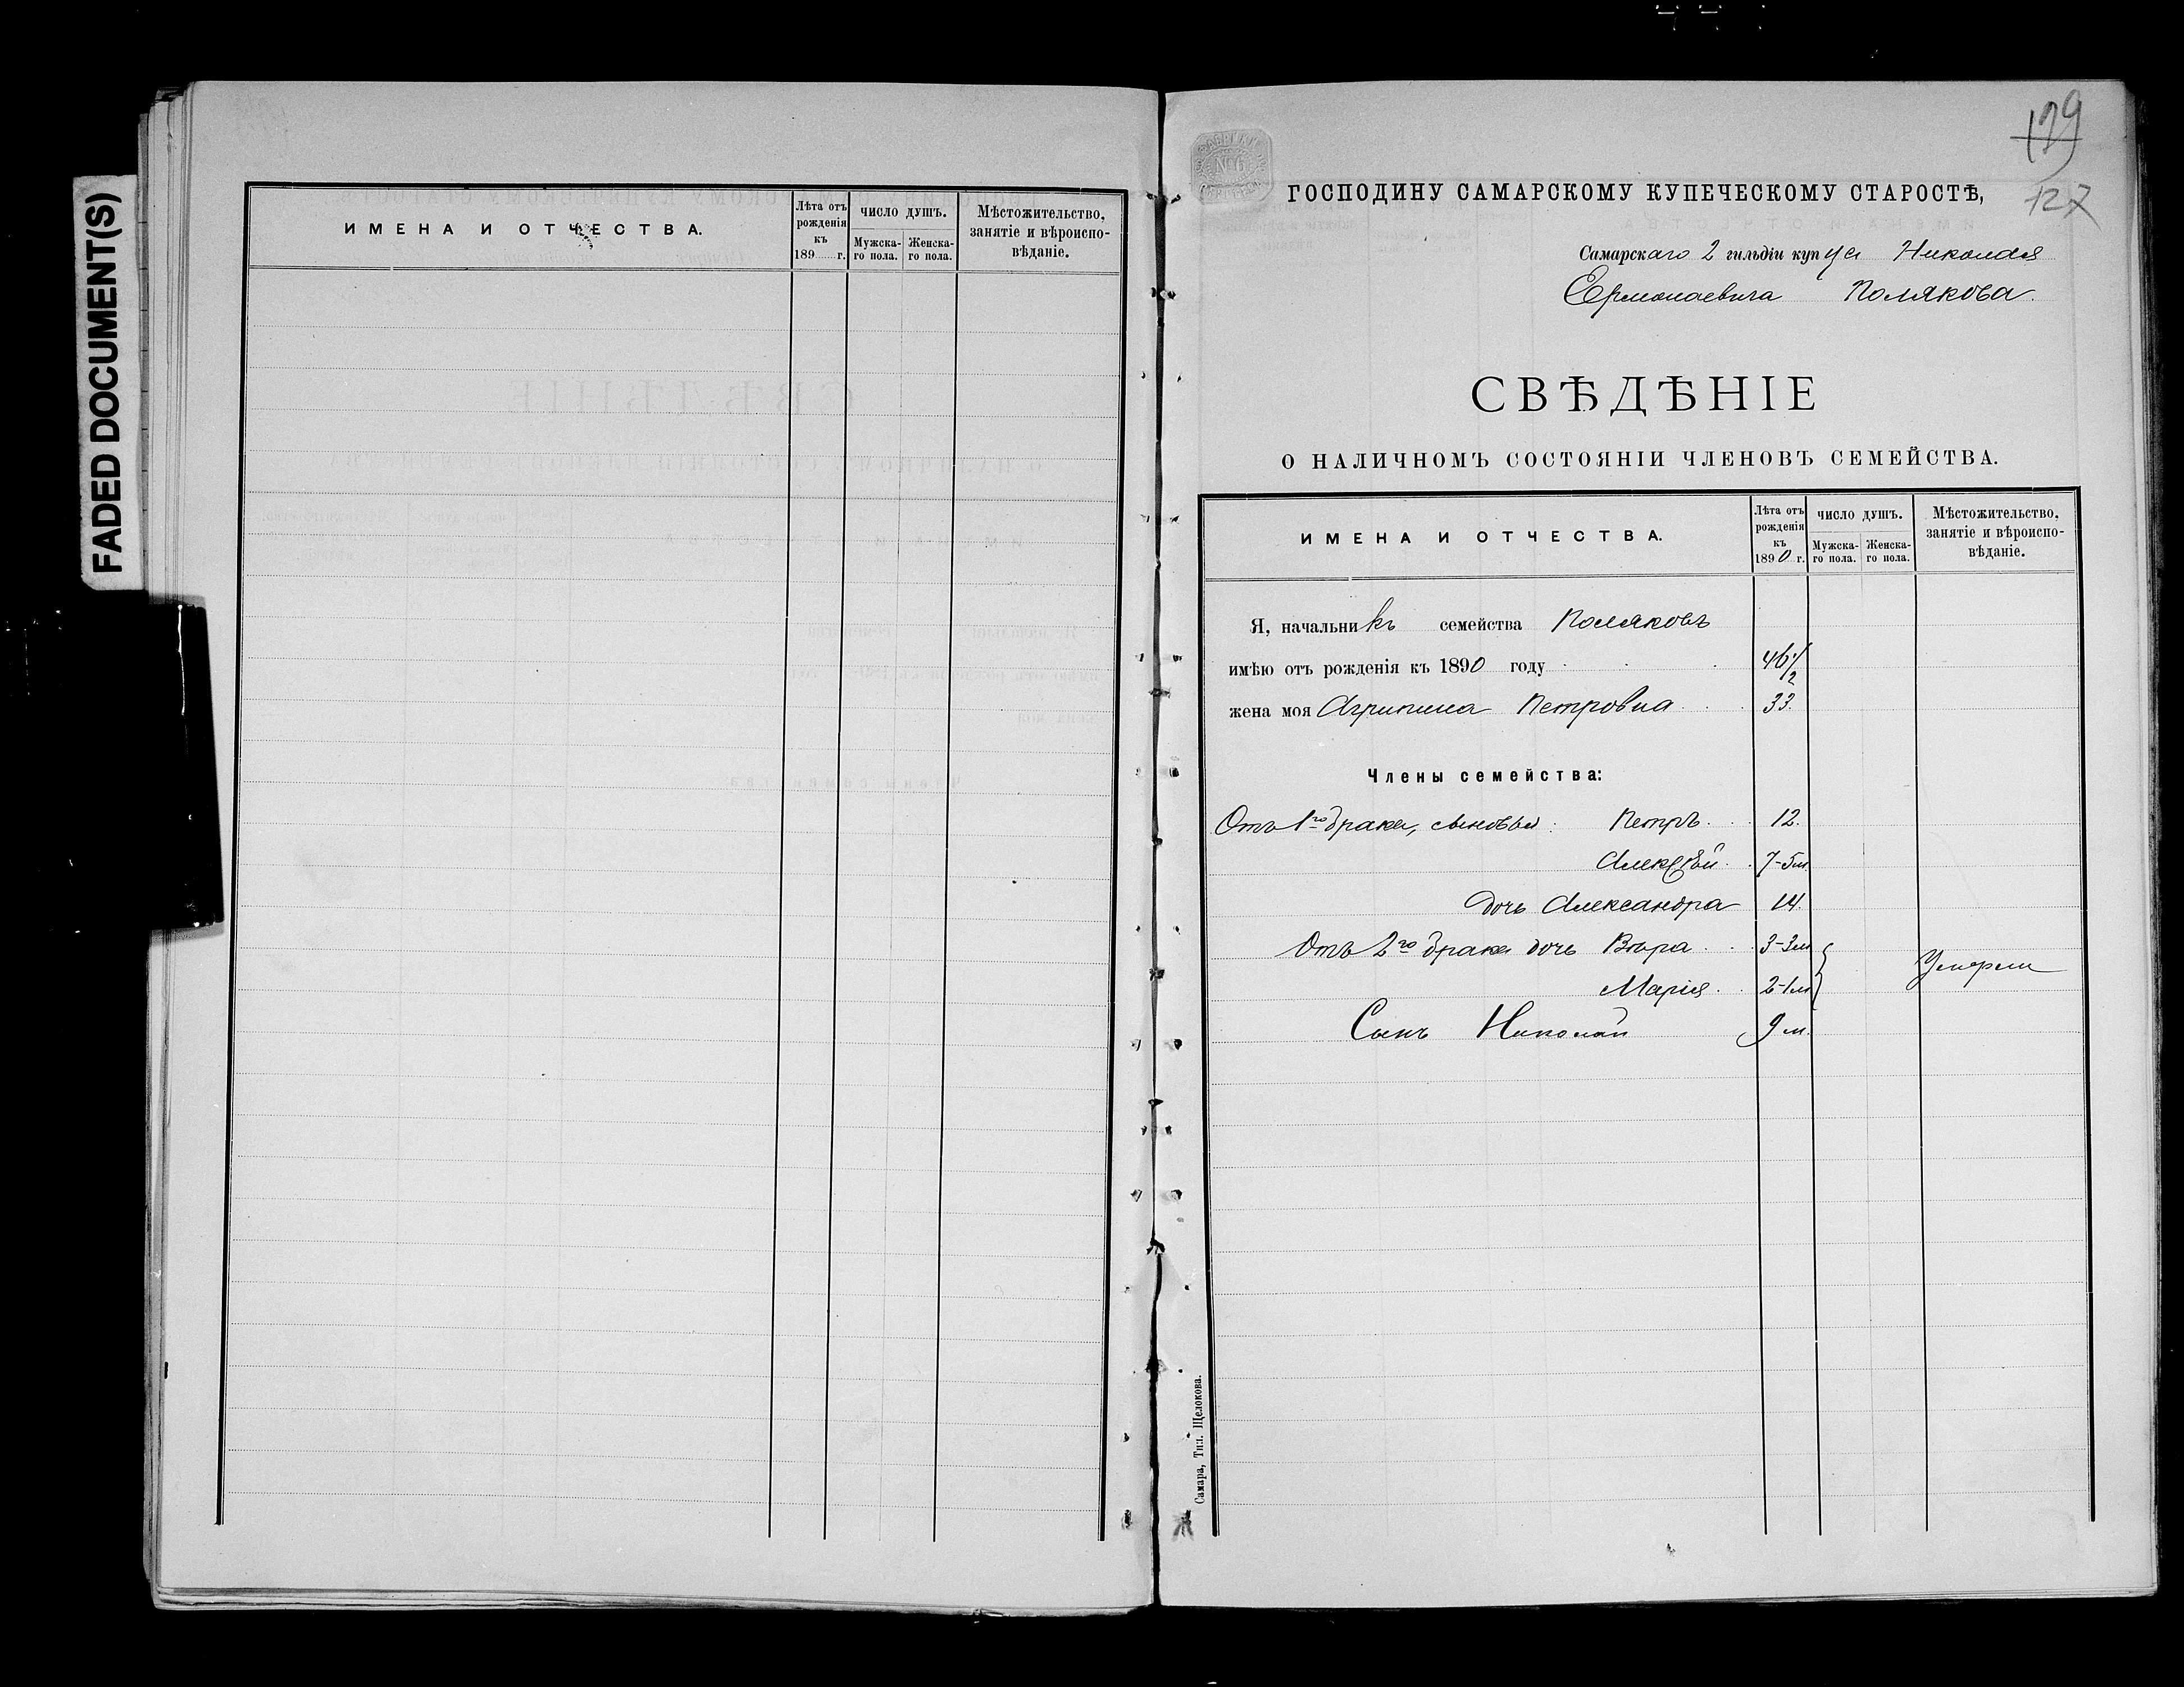 FADED DOCUMENT(S)
ИМЕНА И ОТЧЕСТВА.
Лѣта отъ рожденія къ 189 г.
ЧИСЛО ДУШЪ.
Мужска-го пола.
Женска-го пола.
Мѣстожительство, занятіе и вѣроиспо-вѣданіе.
№ 6
129
127
ГОСПОДИНУ САМАРСКОМУ КУПЕЧЕСКОМУ СТАРОСТѢ,
Самарскаго 2 гильдіи купца Николая
Ермолаевича Полякова.
СВѢДѢНІЕ
О НАЛИЧНОМЪ СОСТОЯНІИ ЧЛЕНОВЪ СЕМЕЙСТВА.
ИМЕНА И ОТЧЕСТВА.
Лѣта отъ рожденія къ 1890 г.
ЧИСЛО ДУШЪ.
Мужска-го пола.
Женска-го пола.
Мѣстожительство, занятіе и вѣроиспо-вѣданіе.
Я, начальникъ семейства Поляковъ
имѣю отъ рожденія къ 1890 году 46 1/2
жена моя Агрипина Петровна 33.
Члены семейства:
Отъ 1го брака, сыновья: Петръ 12.
Алексѣй 7-5м.
дочь Александра 14.
Отъ 2го брака дочь Вѣра 3-3м
Марія 2-1м Умерли
Сынъ Николай 9 м.
Самара, Тип. Щелокова.